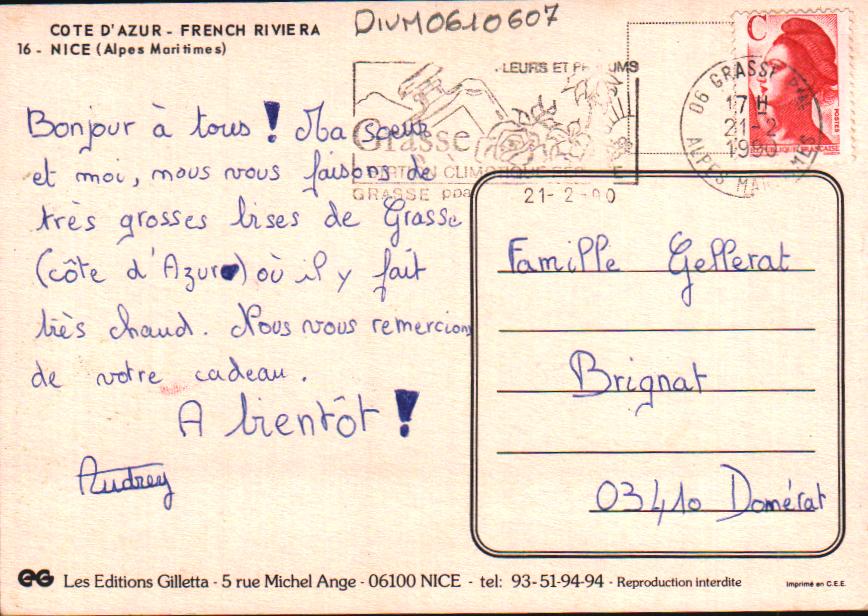 COTE D'AZUR - FRENCH RIVIERA
16 - NICE (Alpes Maritimes)
DIVM0610607
LEURS ET PARFUMS
Grasse
GRASSE ppal
21-2-90
C
06 GRASSE PPAL
17 H
21-2
1990
ALPES MARITIMES
POSTES
Bonjour à tous ! Ma soeur
et moi, nous vous faisons de
très grosses bises de Grasse
(côte d'Azur) où il y fait
très chaud. Nous vous remercions
de votre cadeau.
A bientôt !
Audrey
Famille Gellerat
Brignat
03410 Domérat
GG Les Editions Gilletta - 5 rue Michel Ange - 06100 NICE - tel: 93-51-94-94 - Reproduction interdite
Imprimé en C.E.E.